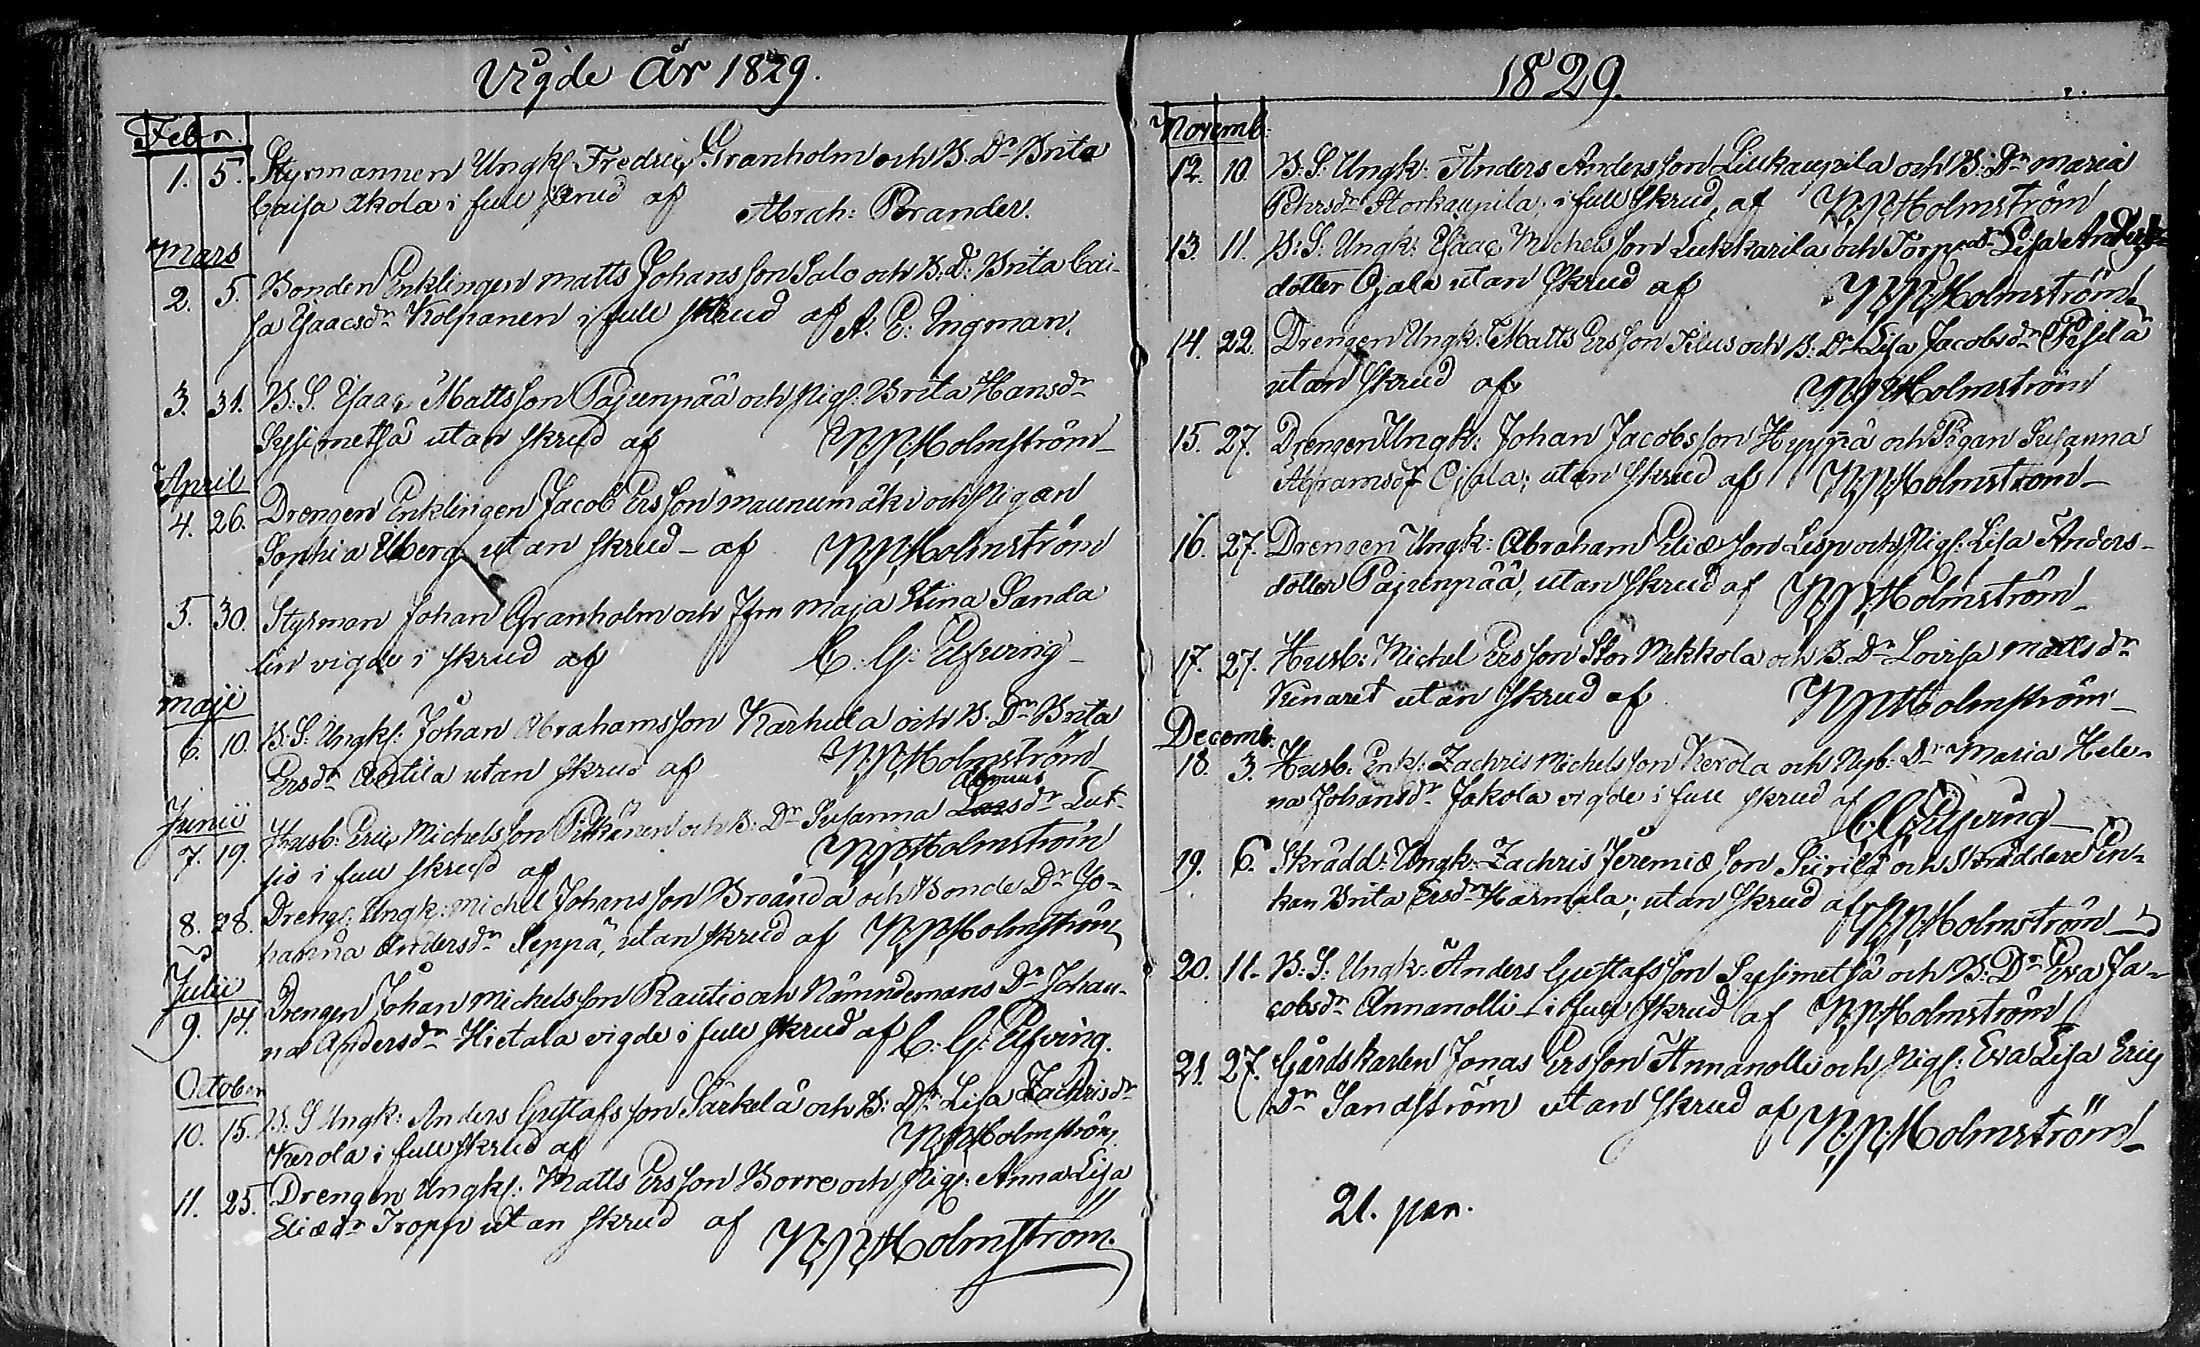 Vigde år 1829.
Febr.
1. 5. Styrmannen Ungk. Fredric Granholm och B. Dr Brita
Caisa Akola i full skrud af Abrah: Brander.
Mars
2. 5. Bonden Enklingen Matts Johansson Salo och B. D: Brita Cai-
sa Isaacsdr Kolpanen i full skrud af A. E. Ingman.
3. 31. B. S. Isaac Mattsson Pajunpää och Pig. Brita Hansdr
Sysimetsä utan skrud af N: N: Holmström
April
4. 26. Drengen Enklingen Jacob Ersson Maunumäki och Pigan
Sophia Åberg utan skrud af N: N: Holmström
5. 30. Styrman Johan Granholm och Jfrn Maja Stina Sanda
lin vigde i skrud af C. G. Elfving
Maji
6. 10. B: S. Ungk: Johan Abrahamsson Karhula och B. Dr Brita
Ersdr Antila utan skrud af N: N: Holmström
Junii
7. 19. Husb: Eric Michelsson Pitkänen och B: Dr Susanna Larsdr Lut-
sio i full skrud af N: N: Holmström
8. 28. Dreng: Ungk: Michel Johansson Broända och Bonde Dr Jo-
hanna Andersdr Seppä, utan skrud af N: N: Holmström
Julii
9. 14. Drengen Johan Michelsson Rautio och Nämndemans Dr Johan-
na Andersdr Hietala vigde i full skrud af C: G: Elfving.
October
10. 15. B. S Ungk: Anders Gustafsson Särkelä och B: Dr Lisa Zachrisdr
Kerola i full skrud af N: N: Holmström
11. 25. Drengen Ungk: Matts Ersson Borre och Pig: Anna Lisa
Eliædr Tropp utan skrud af N: N: Holmström.
1829.
Novemb:
12. 10. B: S. Ungk: Anders Andersson Liukaupila och B: Dr Maria
Pehrsdr Storkaupila, i full skrud, af N: N: Holmström
13. 11. B: S. Ungk: Isaac Michelsson Lukkarila och Lisa Anders
dotter Ojala utan skrud af N: N: Holmström
14. 22. Drengen Ungk: Matts Ersson Pilus och B: Dr Lisa Jacobsdr Pesilä
utan skrud af N: N: Holmström
15. 27. Drengen Ungk: Johan Jacobsson Hyppä och Pigan Susanna
Abramsdr Ojala; utan skrud af N: N: Holmström
16. 27. Drengen Ungk: Abraham Eliæson Lesp och Pig: Lisa Anders-
dotter Pajunpää, utan skrud af N: N: Holmström
17. 27. Husb: Michel Ersson Stor Mekkola och B. Dr Lovisa Mattsdr
Kinaret utan skrud af N: N: Holmström
Decemb:
18. 3. Husb: Enkl: Zachris Michelsson Kerola och Nyb: Dr Maria Hele-
na Johansdr Jakola vigde i full skrud af C. G. Elfving
19. 6. Skrädd: Ungk: Zachris Jeremiæson Siirilä och Skräddare En-
kan Brita Ersdr Harmala; utan skrud af N: N: Holmström
20. 11. B: S: Ungk: Anders Gustafsson Sysimetsä och B: Dr Eva Ja-
cobsdr Annanolli i full skrud af N: N: Holmström
21. 27. Gårdskarlen Jonas Ersson Annanolli och Pig: Eva Lisa Eric
Dr Sandström utan skrud af N: N: Holmström
21. par.